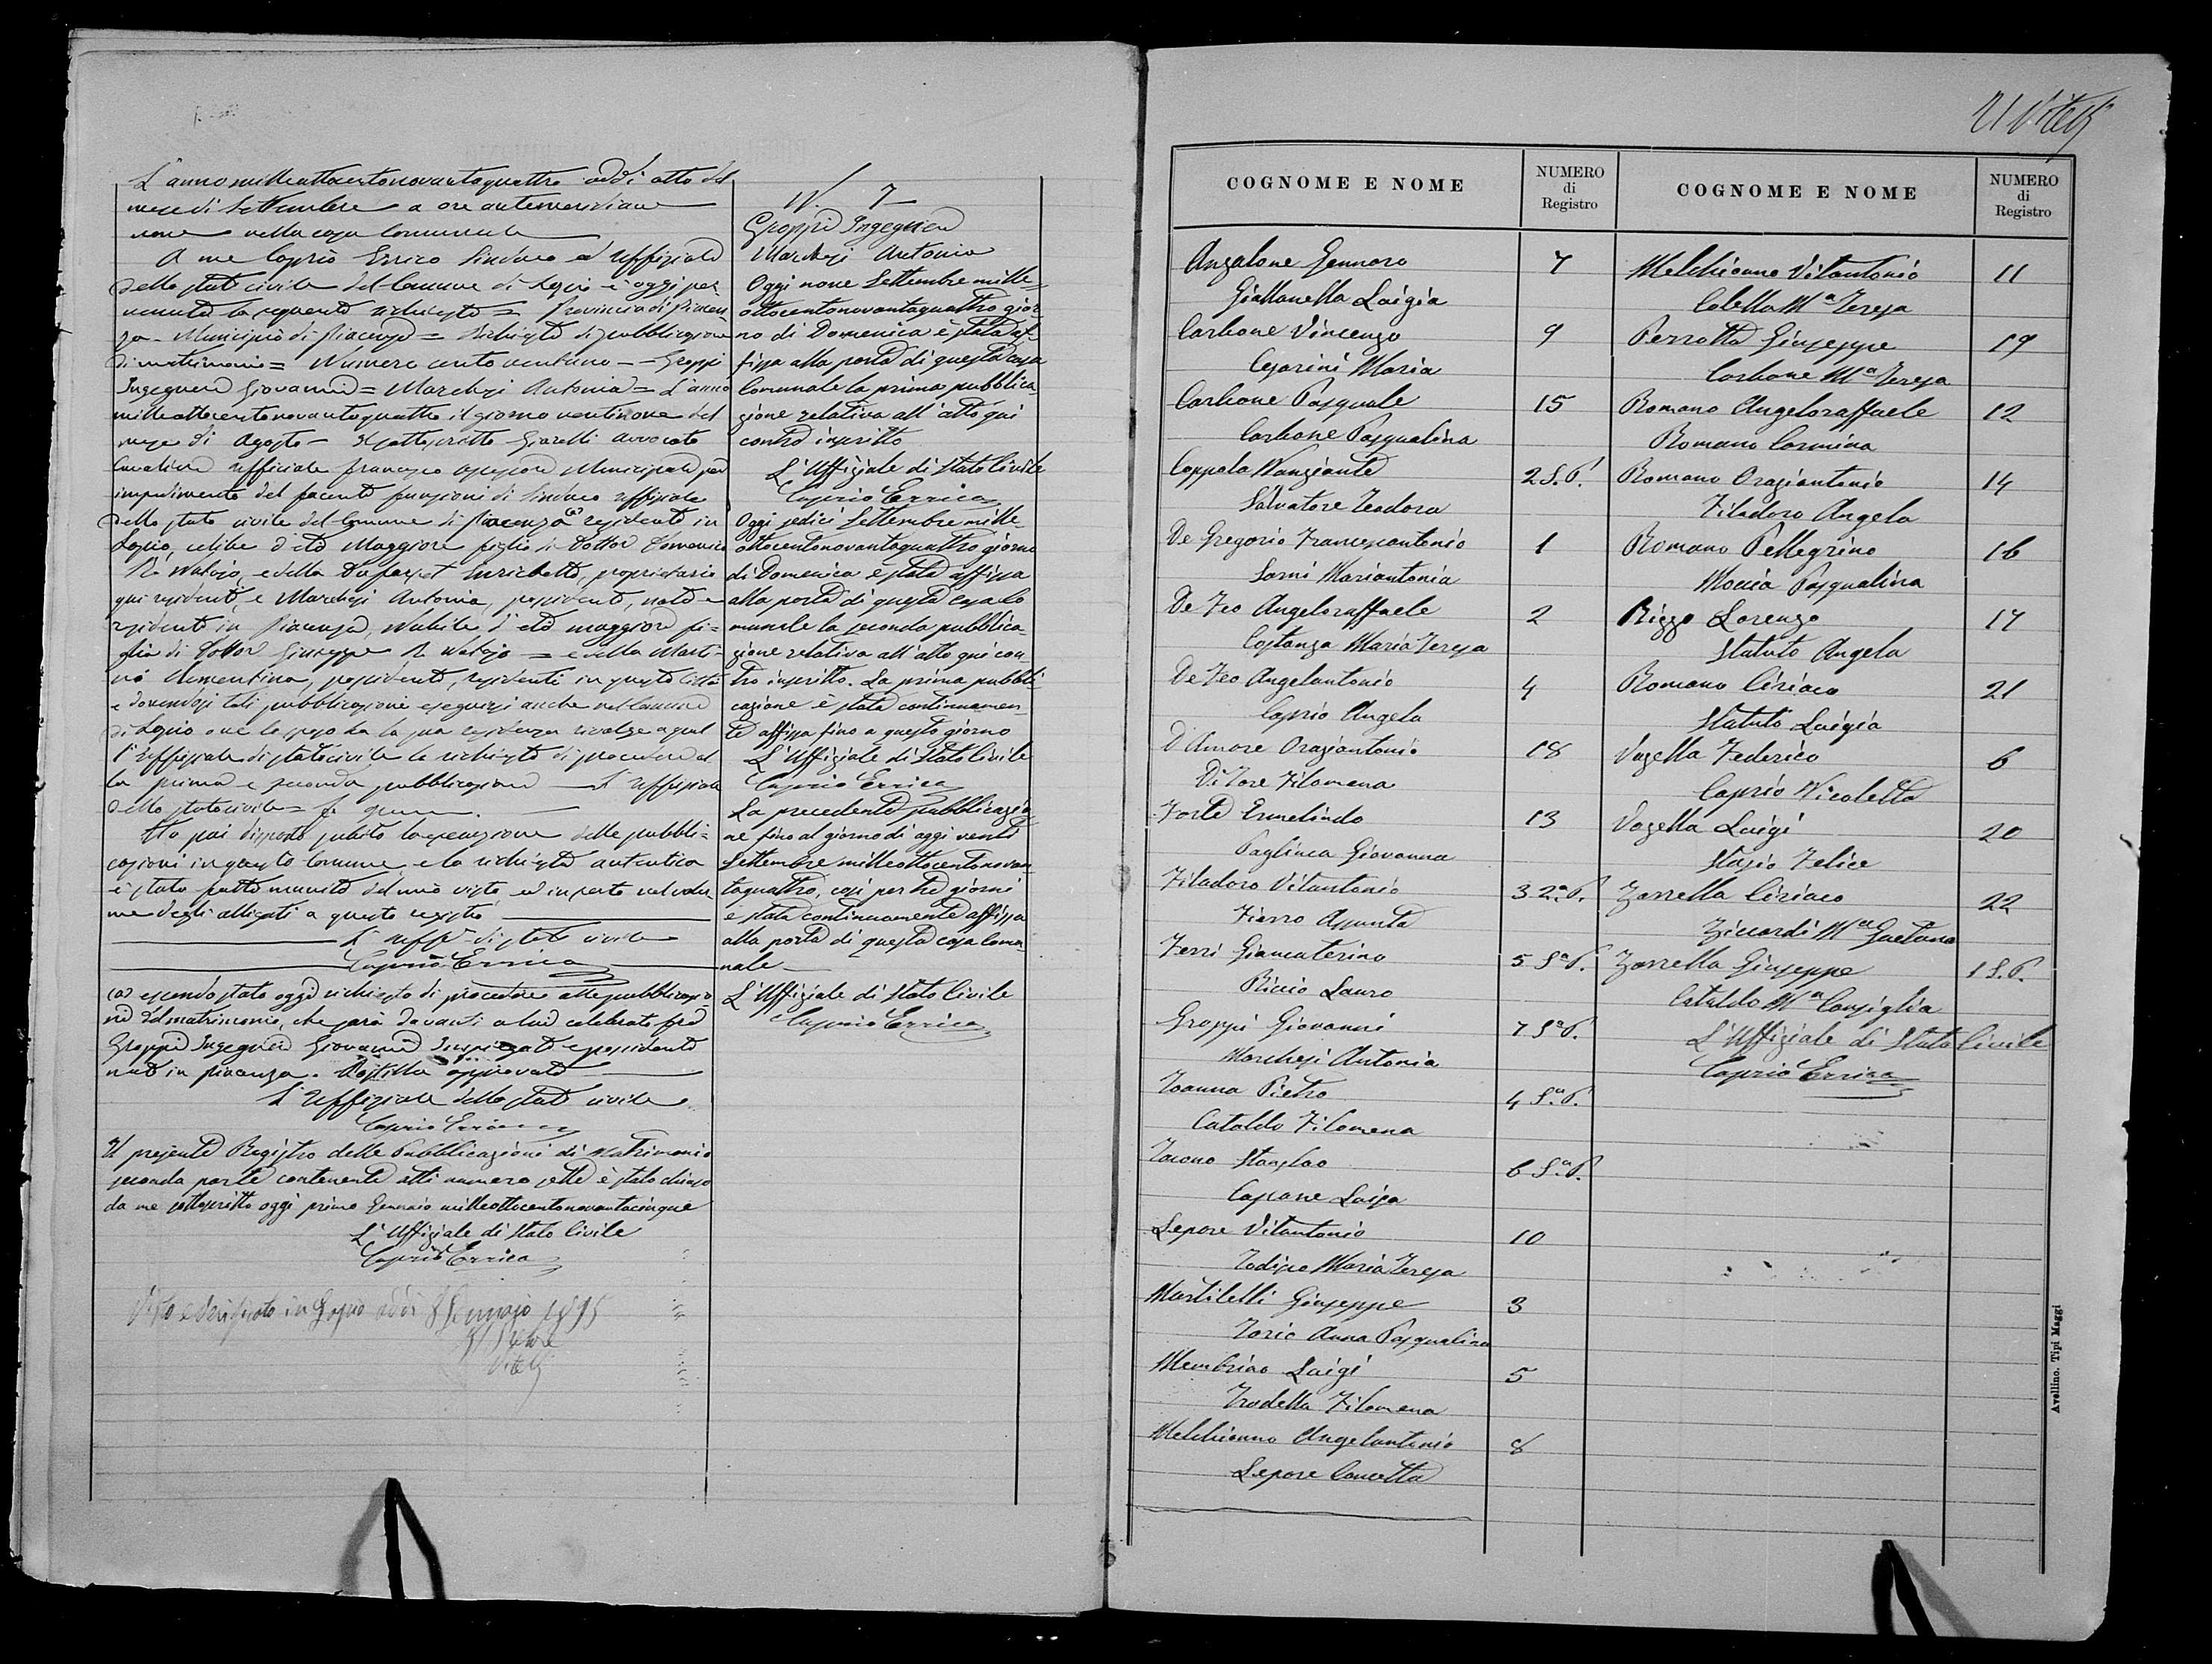 L'anno milleottocentonovantaquattro addì otto del
mese di Settembre a ore antemeridiane
nove nella casa Comunale
A me Caprio Errico Sindaco ed Uffiziale
dello stato civile del Comune di è oggi per
venuta la seguente richiesta = Provincia di Piacen
za - Municipio di Piacenza = Richiesta di pubblicazione
di matrimonio = Numero cento ventuno - Groppi
Ingegnere Giovanni = Marchesi Antonia = L'anno
milleottocentonovantaquattro il giorno ventinove del
mese di Agosto - Il sottoscritto Giarelli avvocato
Cavaliere ufficiale Francesco assessore Municipale per
impedimento del facente funzioni di Sindaco uffiziale
dello stato civile del Comune di Piacenza (a) residente in
celibe d'età Maggiore figlio di Dottor Domenico
e della Enrichetta, proprietario
qui residente, e Marchesi Antonia, possidente, nata e
residente in Piacenza, nubile d'età maggiore fi=
glia di Dottor Giuseppe = e della Marti-
ni Clementina, possidente, residenti in questa Città
e dovendosi tali pubblicazioni eseguirsi anche nel Comune
di ove lo sposo ha la sua residenza rivolge a quel
l'Uffiziale di stato civile la richiesta di procedere al
la prima e seconda pubblicazione - L'Uffiziale
dello stato civile =
Ho poi disposto subito la esecuzione delle pubbli=
cazioni in questo Comune e la richiesta autentica
è stata munita del mio visto ed inserta nel volu
me degli allegati a questo registro
L'Uffe di stato civile
Caprio Errico
(a) essendo stato oggi richiesto di procedere alle pubblicazio-
ni del matrimonio, che sarà davanti a lui celebrato fra
Groppi Ingegnere Giovanni Impiegato e possidente
nato in Piacenza. Postilla approvata
L'Uffiziale dello stato civile
Caprio Errico
Il presente Registro delle Pubblicazioni di Matrimonio
seconda parte contenente atti numero sette è stato chiuso
da me sottoscritto oggi primo Gennaio milleottocentonovantacinque
L'Uffiziale di Stato Civile
Caprio Errico
Visto e verificato in addì 8 Gennaio 1895
Il Pretore
Vitelli
N. 7
Groppi Ingegnere
Marchesi Antonia
Oggi nove Settembre mille=
ottocentonovantaquattro gior
no di Domenica è stata af=
fissa alla porta di questa casa
Comunale la prima pubblica
zione relativa all'atto qui
contro inscritto
L'Uffiziale di Stato Civile
Caprio Errico
Oggi sedici Settembre mille
ottocentonovantaquattro giorno
di Domenica è stata affissa
alla porta di questa casa Co
munale la seconda pubblica
zione relativa all'atto qui con
tro inscritto. La prima pubbli
cazione è stata continuamen
te affissa fino a questo giorno
L'Uffiziale di Stato Civile
Caprio Errico
La precedente pubblicazio
ne fino al giorno di oggi venti
Settembre milleottocentonovan
taquattro, così per tre giorni
è stata continuamente affissa
alla porta di questa casa Comu
nale
L'Uffiziale di Stato Civile
Caprio Errico
21 Vitelli
COGNOME E NOME
NUMERO
di
Registro
Angalone Gennaro 7
Giallanella Luigia
Carbone Vincenzo 9
Cesarini Maria
Carbone Pasquale 15
Carbone Pasqualina
Coppola Nunziante 2 S.P.
Salvatore Teodora
De Gregorio Francescantonio 1
Sarni Mariantonia
De Feo Angeloraffaele 2
Costanza Maria Teresa
De Feo Angelantonio 4
Caprio Angela
D'Amore Oraziantonio 18
Di Iore Filomena
Forte Ermelindo 13
Pagliuca Giovanna
Filadoro Vitantonio 3 2a P.
Fierro Assunta
Ferri Giancaterino 5 Sa P.
Riccio Laura
Groppi Giovanni 7 Sa P.
Marchesi Antonia
Ioanna Pietro 4 Sa P.
Cataldo Filomena
Iacono Stanslao 6 Sa P.
Capone Luisa
Lepore Vitantonio 10
Iodice Maria Teresa
Martitelli Giuseppe 3
Iorio Anna Pasqualina
Membrino Luigi 5
Trodella Filomena
Melchionno Angelantonio 8
Lepore Concetta
COGNOME E NOME
NUMERO
di
Registro
Melchionno Vitantonio 11
Cobello Ma Teresa
Perrotta Giuseppe 19
Carbone Ma Teresa
Romano Angeloraffaele 12
Romano Carmina
Romano Oraziantonio 14
Filadoro Angela
Romano Pellegrino 16
Moccia Pasqualina
Rizzo Lorenzo 17
Statuto Angela
Romano Ciriaco 21
Statuto Luigia
Vozella Federico 6
Caprio Nicoletta
Vozella Luigi 20
Stasio Felice
Zarrella Ciriaco 22
Ziccardi Ma Gaetana
Zarrella Giuseppe 1 S.P.
Cataldo Ma Consiglia
L'Uffiziale di Stato Civile
Caprio Errico
Avellino. Tipi Maggi